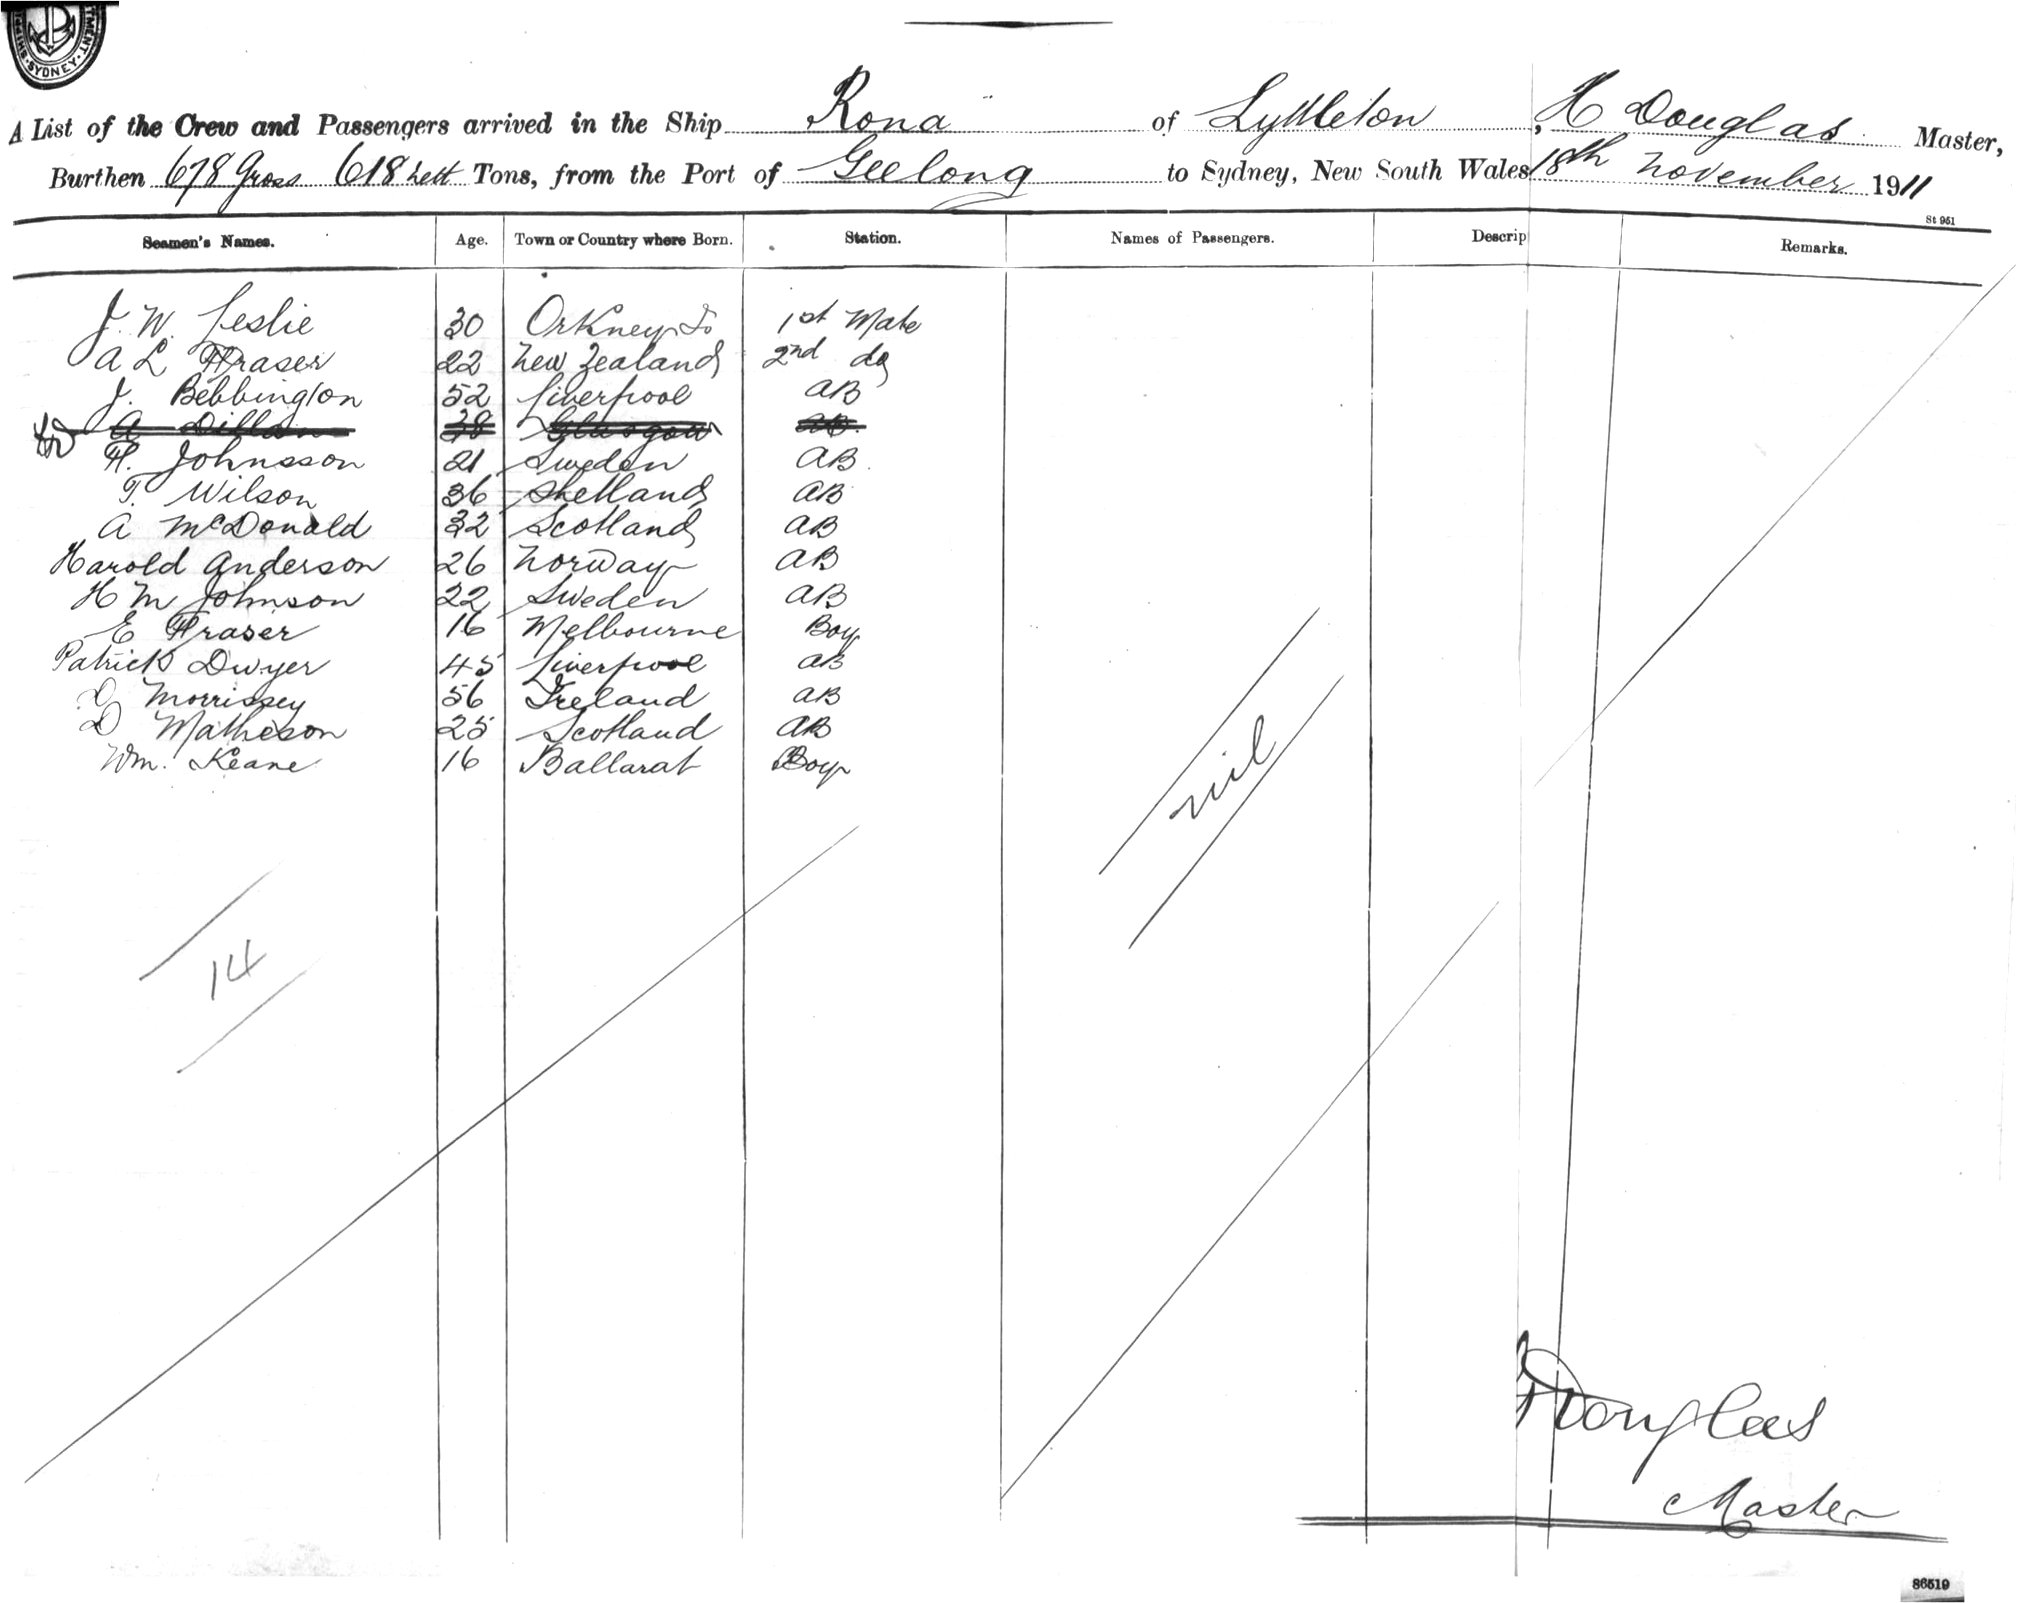 SYDNEY
A List of the Crew and Passengers arrived in the Ship Rona of Lyttleton, H Douglas Master,
Burthen 678 Gross 618 Nett Tons, from the Port of Geelong to Sydney, New South Wales 18th November 1911
St 951
Seamen's Names. Age. Town or Country where Born. Station. Names of Passengers. Descrip Remarks.
J. W. Leslie 30 Orkney Is 1st Mate
A L Fraser 22 New Zealand 2nd do
J. Bebbington 52 Liverpool AB
A Dillon 38 Glasgow AB.
H. Johnsson 21 Sweden AB.
T. Wilson 36 Shetland AB
A McDonald 32 Scotland AB
Harold Anderson 26 Norway AB
H M Johnson 22 Sweden AB
E Fraser 16 Melbourne Boy
Patrick Dwyer 45 Liverpool AB
Morrissey 56 Ireland AB
D Matheson 25 Scotland AB
Wm. Keane 16 Ballarat Boy
nil
14
H Douglas
Master
86519